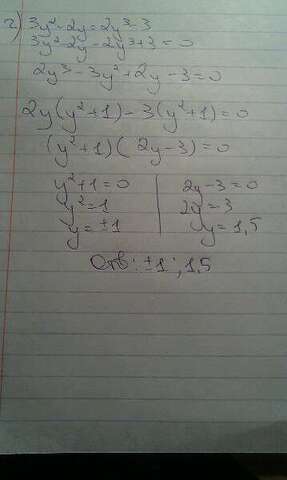 г) 3y²-2y=2y³-3
3y²-2y-2y³+3=0
2y³-3y²+2y-3=0
2y(y²+1)-3(y²+1)=0
(y²+1)(2y-3)=0
y²+1=0 | 2y-3=0
y²=1 | 2y=3
y=±1 | y=1,5
Отв: ±1; 1,5